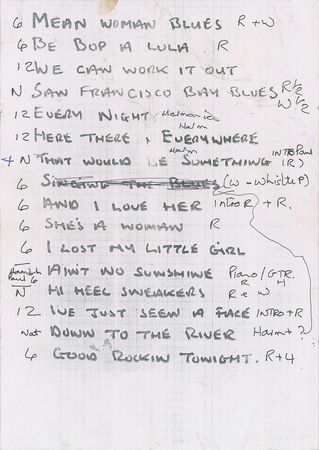 6 MEAN WOMAN BLUES R + W
6 BE BOP A LULA R
12 WE CAN WORK IT OUT
N SAN FRANCISCO BAY BLUES R 1/2 W 1/2
12 EVERY NIGHT Harmonies
12 HERE THERE & EVERYWHERE Harm
+ N THAT WOULD BE SOMETHING INTRO Paul (R)
6 SINGING THE BLUES (W - WHISTLE P)
6 AND I LOVE HER INTRO R + R.
6 SHE'S A WOMAN R
6 I LOST MY LITTLE GIRL
Hamish Paul 6 AIN'T NO SUNSHINE Piano / GTR. R H
N HI HEEL SNEAKERS R + W
12 I'VE JUST SEEN A FACE INTRO + R
Nat DOWN TO THE RIVER Harm + ?
6 GOOD ROCKIN TONIGHT. R + 4